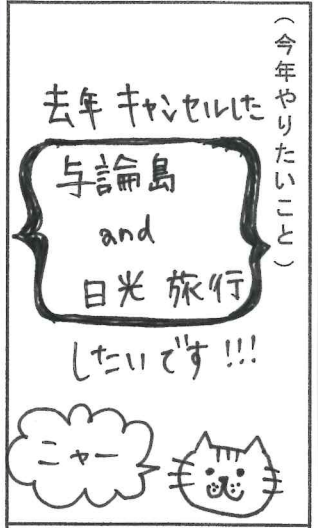 （今年やりたいこと）
去年キャンセルした
与論島
and
日光 旅行
したいです!!!
ニャー